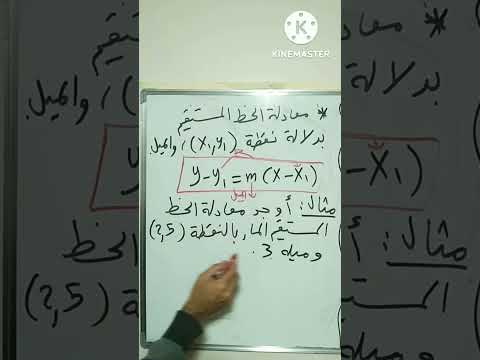 KINEMASTER
* معادلة الخط المستقيم
بدلالة نقطة (x1,y1)، والميل.
y-y1 = m (x-x1)
الميل
مثال: أوجد معادلة الخط
المستقيم المار بالنقطة (2,5)
وميله 3.